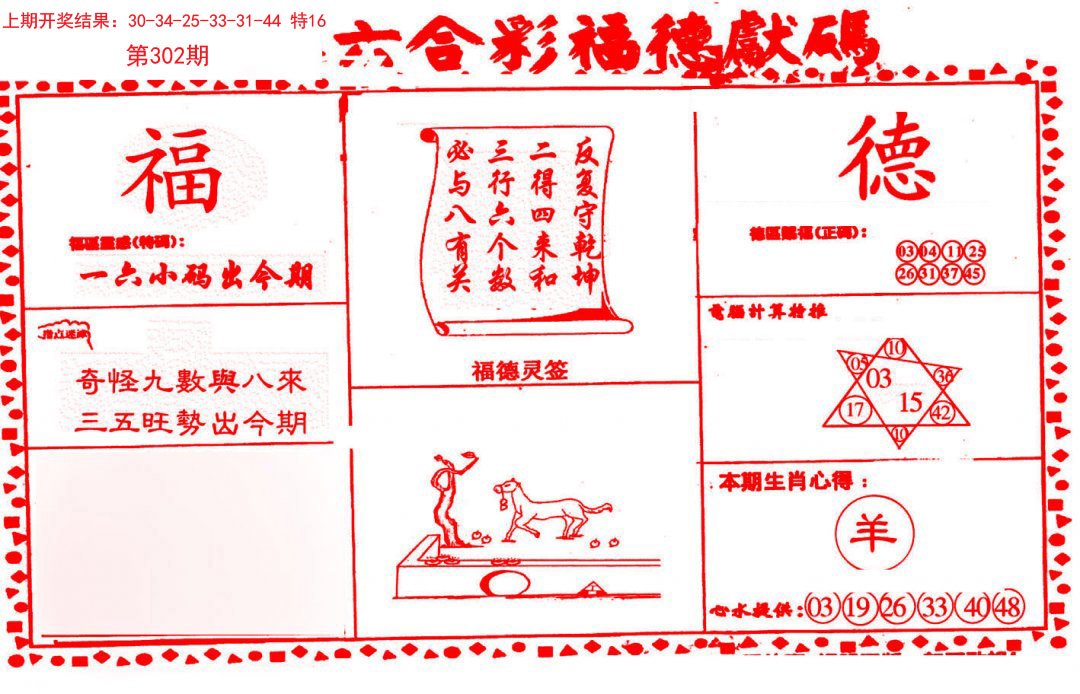 上期开奖结果：30-34-25-33-31-44 特16
第302期
六合彩福德獻碼
福
福區靈感(特碼)：
一六小码出今期
奇怪九數與八來
三五旺勢出今期
反复守乾坤
二得四来和
三行六个数
必与八有关
福德灵签
德
德區賜福(正碼)：
03 04 11 25
26 31 37 45
電腦計算特推
10
05
36
03
15
17
42
10
本期生肖心得：
羊
心水提供:03 19 26 33 40 48